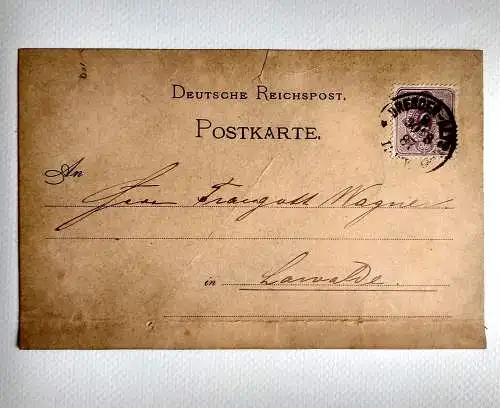 Deutsche Reichspost.
Postkarte.
An
Herrn Traugott Wagner
in Lawalde.